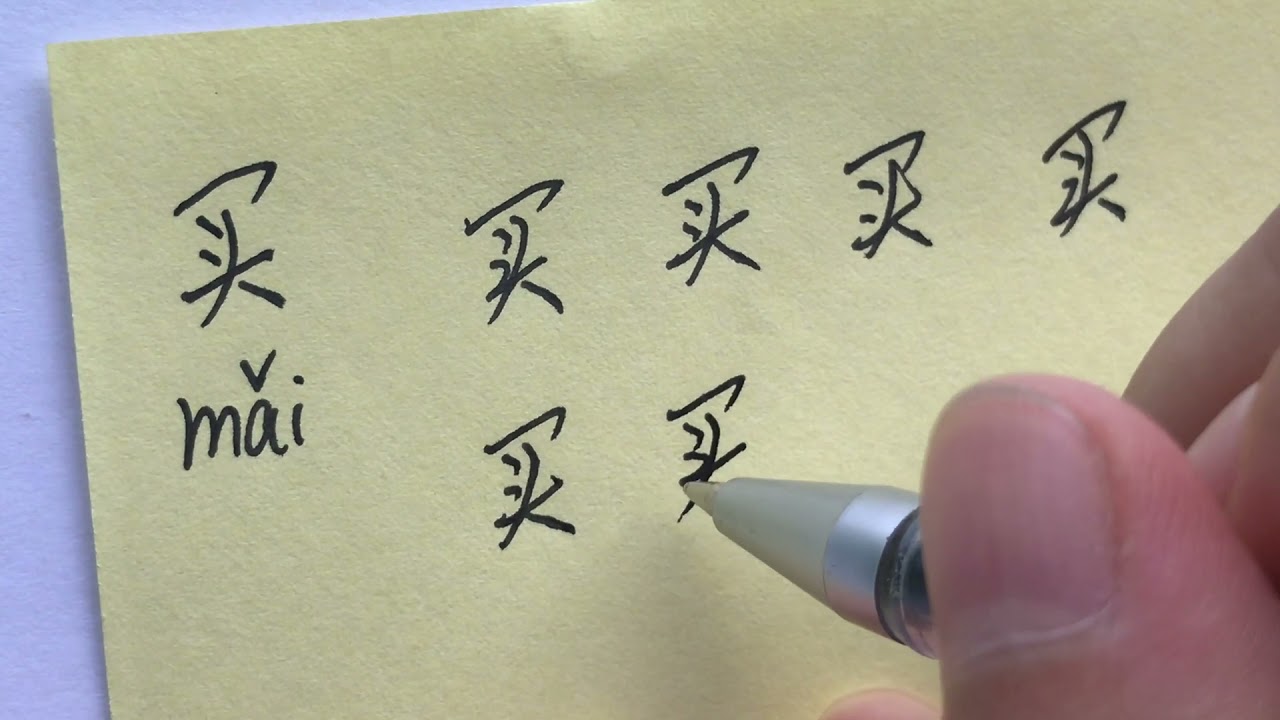 买 买 买 买 买
mǎi 买 买